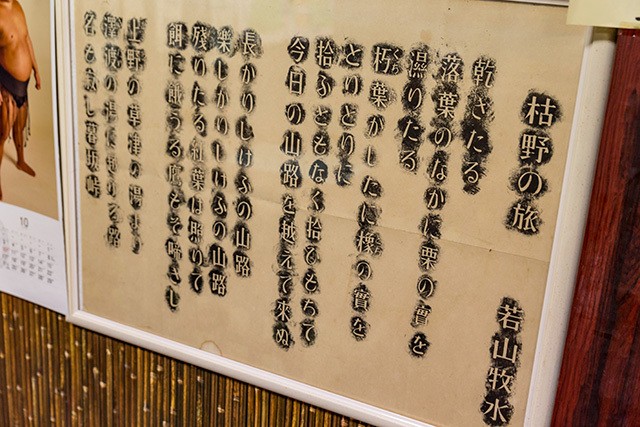 枯野の旅
若山牧水
乾きたる
落葉のなかに栗の實を
濕りたる
朽葉がしたに橡の實を
とりどりに
拾ふともなく拾ひもちて
今日の山路を越えて來ぬ
長かりしけふの山路
樂しかりしけふの山路
殘りたる紅葉は照りて
餌に餓うる鷹もぞ啼きし
上野の草津の湯より
澤渡の湯に越ゆる路
名も寂し暮坂峠
10